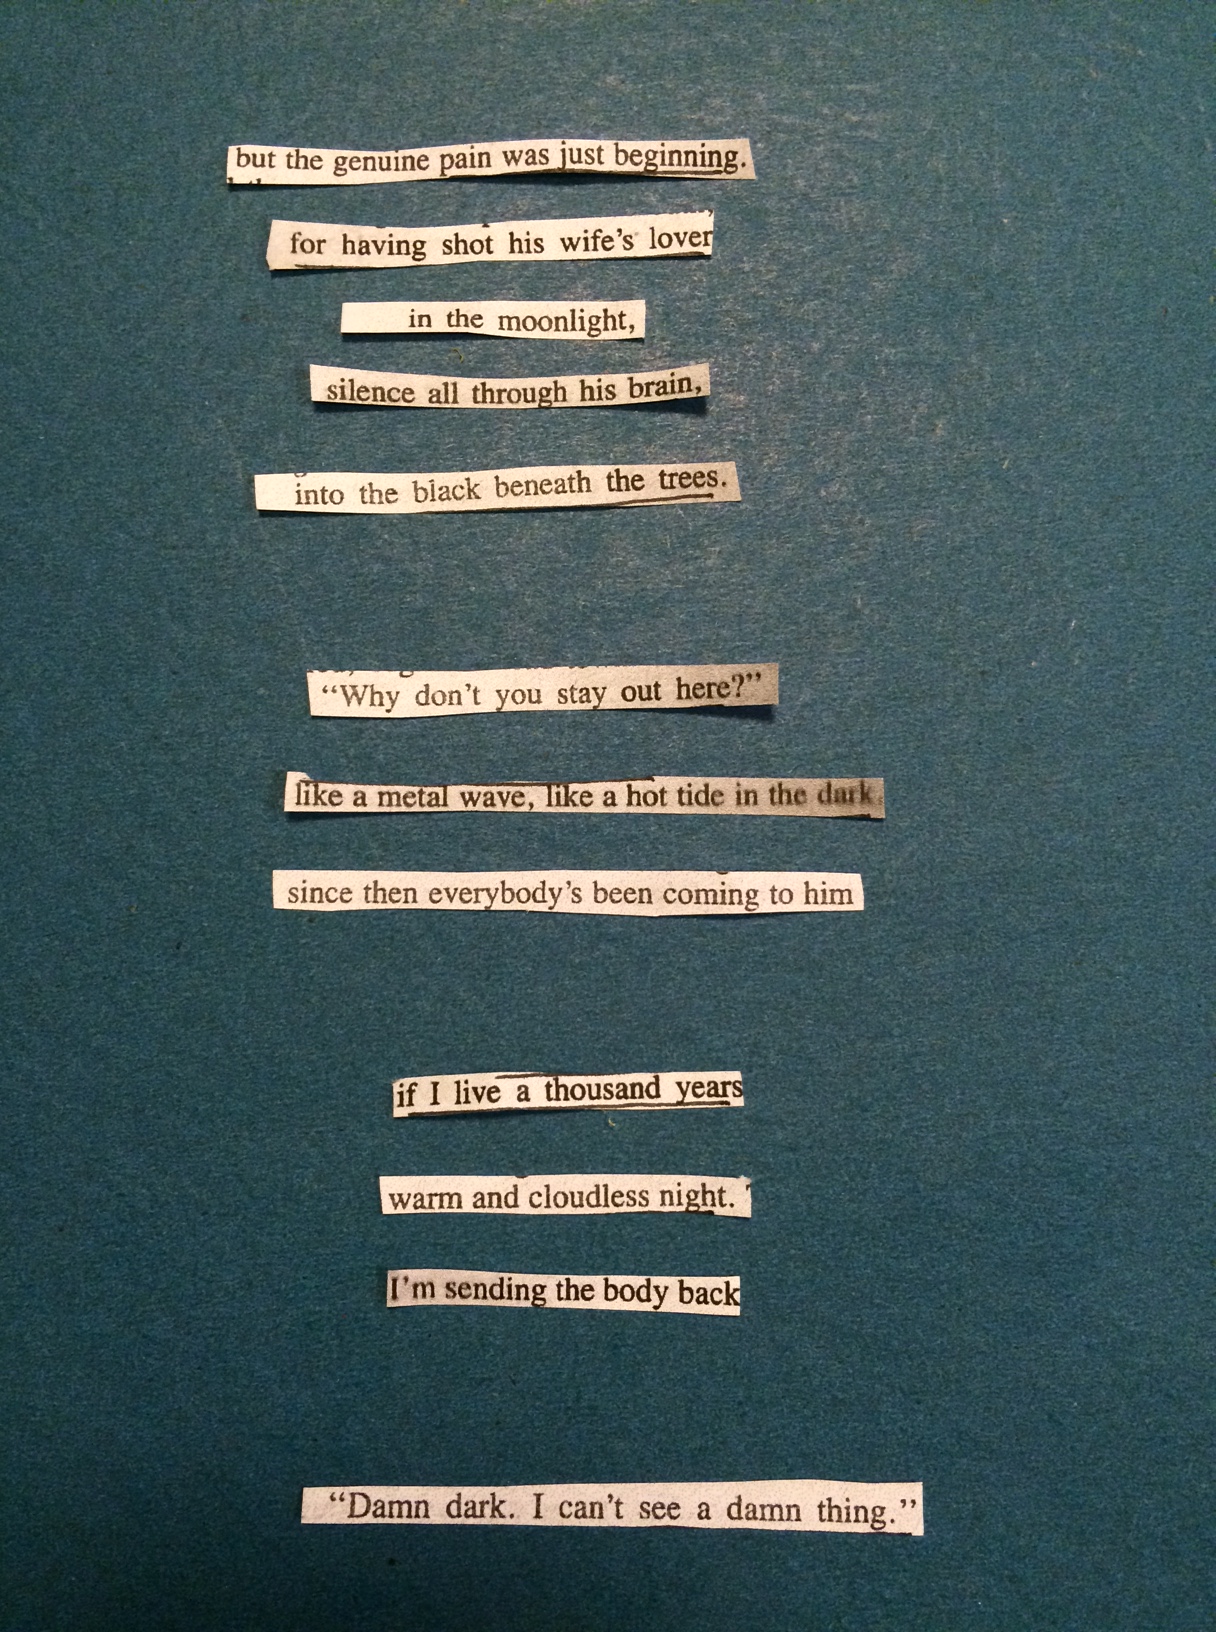 but the genuine pain was just beginning.
for having shot his wife's lover
in the moonlight,
silence all through his brain,
into the black beneath the trees.
“Why don't you stay out here?”
like a metal wave, like a hot tide in the dark.
since then everybody's been coming to him
if I live a thousand years
warm and cloudless night.
I'm sending the body back
“Damn dark. I can't see a damn thing.”